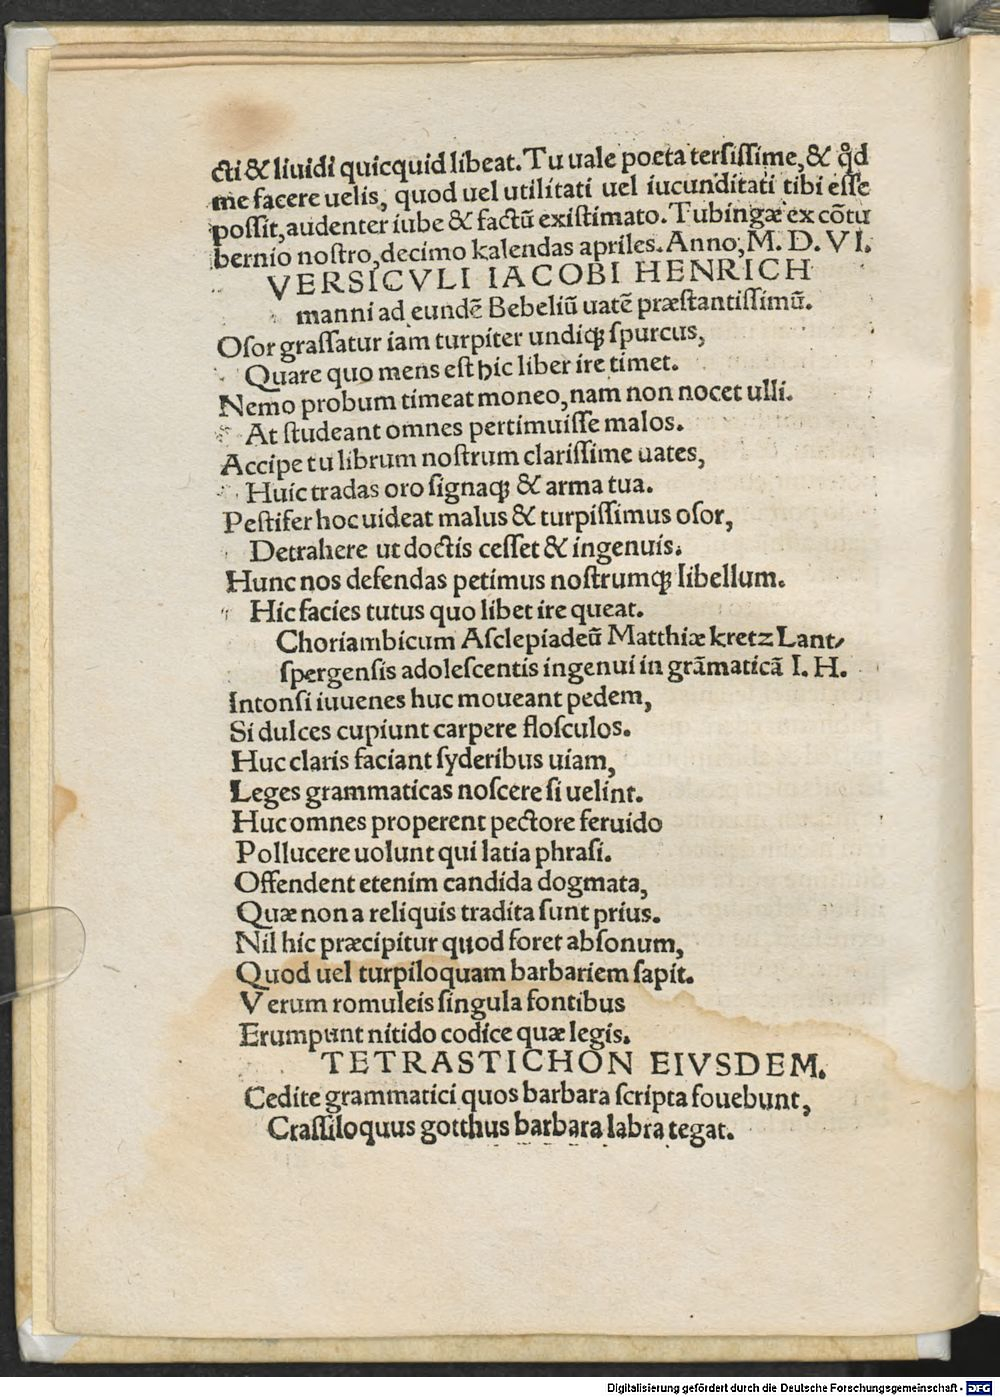 cti & liuidi quicquid libeat. Tu uale poeta tersissime, & qd̛
me facere uelis, quod uel utilitati uel iucunditati tibi esse
possit, audenter iube & factū existimato. Tubingæ ex cōtu
bernio nostro, decimo kalendas apriles. Anno, M. D. VI.
VERSICVLI IACOBI HENRICH
manni ad eundē Bebeliū uatē præstantissimū.
Osor grassatur iam turpiter undiqꝫ spurcus,
Quare quo mens est hic liber ire timet.
Nemo probum timeat moneo, nam non nocet ulli.
At studeant omnes pertimuisse malos.
Accipe tu librum nostrum clarissime uates,
Huic tradas oro signaqꝫ & arma tua.
Pestifer hoc uideat malus & turpissimus osor,
Detrahere ut doctis cesset & ingenuis.
Hunc nos defendas petimus nostrumqꝫ libellum.
Hic facies tutus quo libet ire queat.
Choriambicum Asclepiadeū Matthiæ kretz Lant/
spergensis adolescentis ingenui in grāmaticā I. H.
Intonsi iuuenes huc moueant pedem,
Si dulces cupiunt carpere flosculos.
Huc claris faciant syderibus uiam,
Leges grammaticas noscere si uelint.
Huc omnes properent pectore feruido
Pollucere uolunt qui latia phrasi.
Offendent etenim candida dogmata,
Quæ non a reliquis tradita sunt prius.
Nil hic præcipitur quod foret absonum,
Quod uel turpiloquam barbariem sapit.
Verum romuleis singula fontibus
Erumpunt nitido codice quæ legis.
TETRASTICHON EIVSDEM.
Cedite grammatici quos barbara scripta fouebunt,
Crassiloquus gotthus barbara labra tegat.
Digitalisierung gefördert durch die Deutsche Forschungsgemeinschaft - DFG